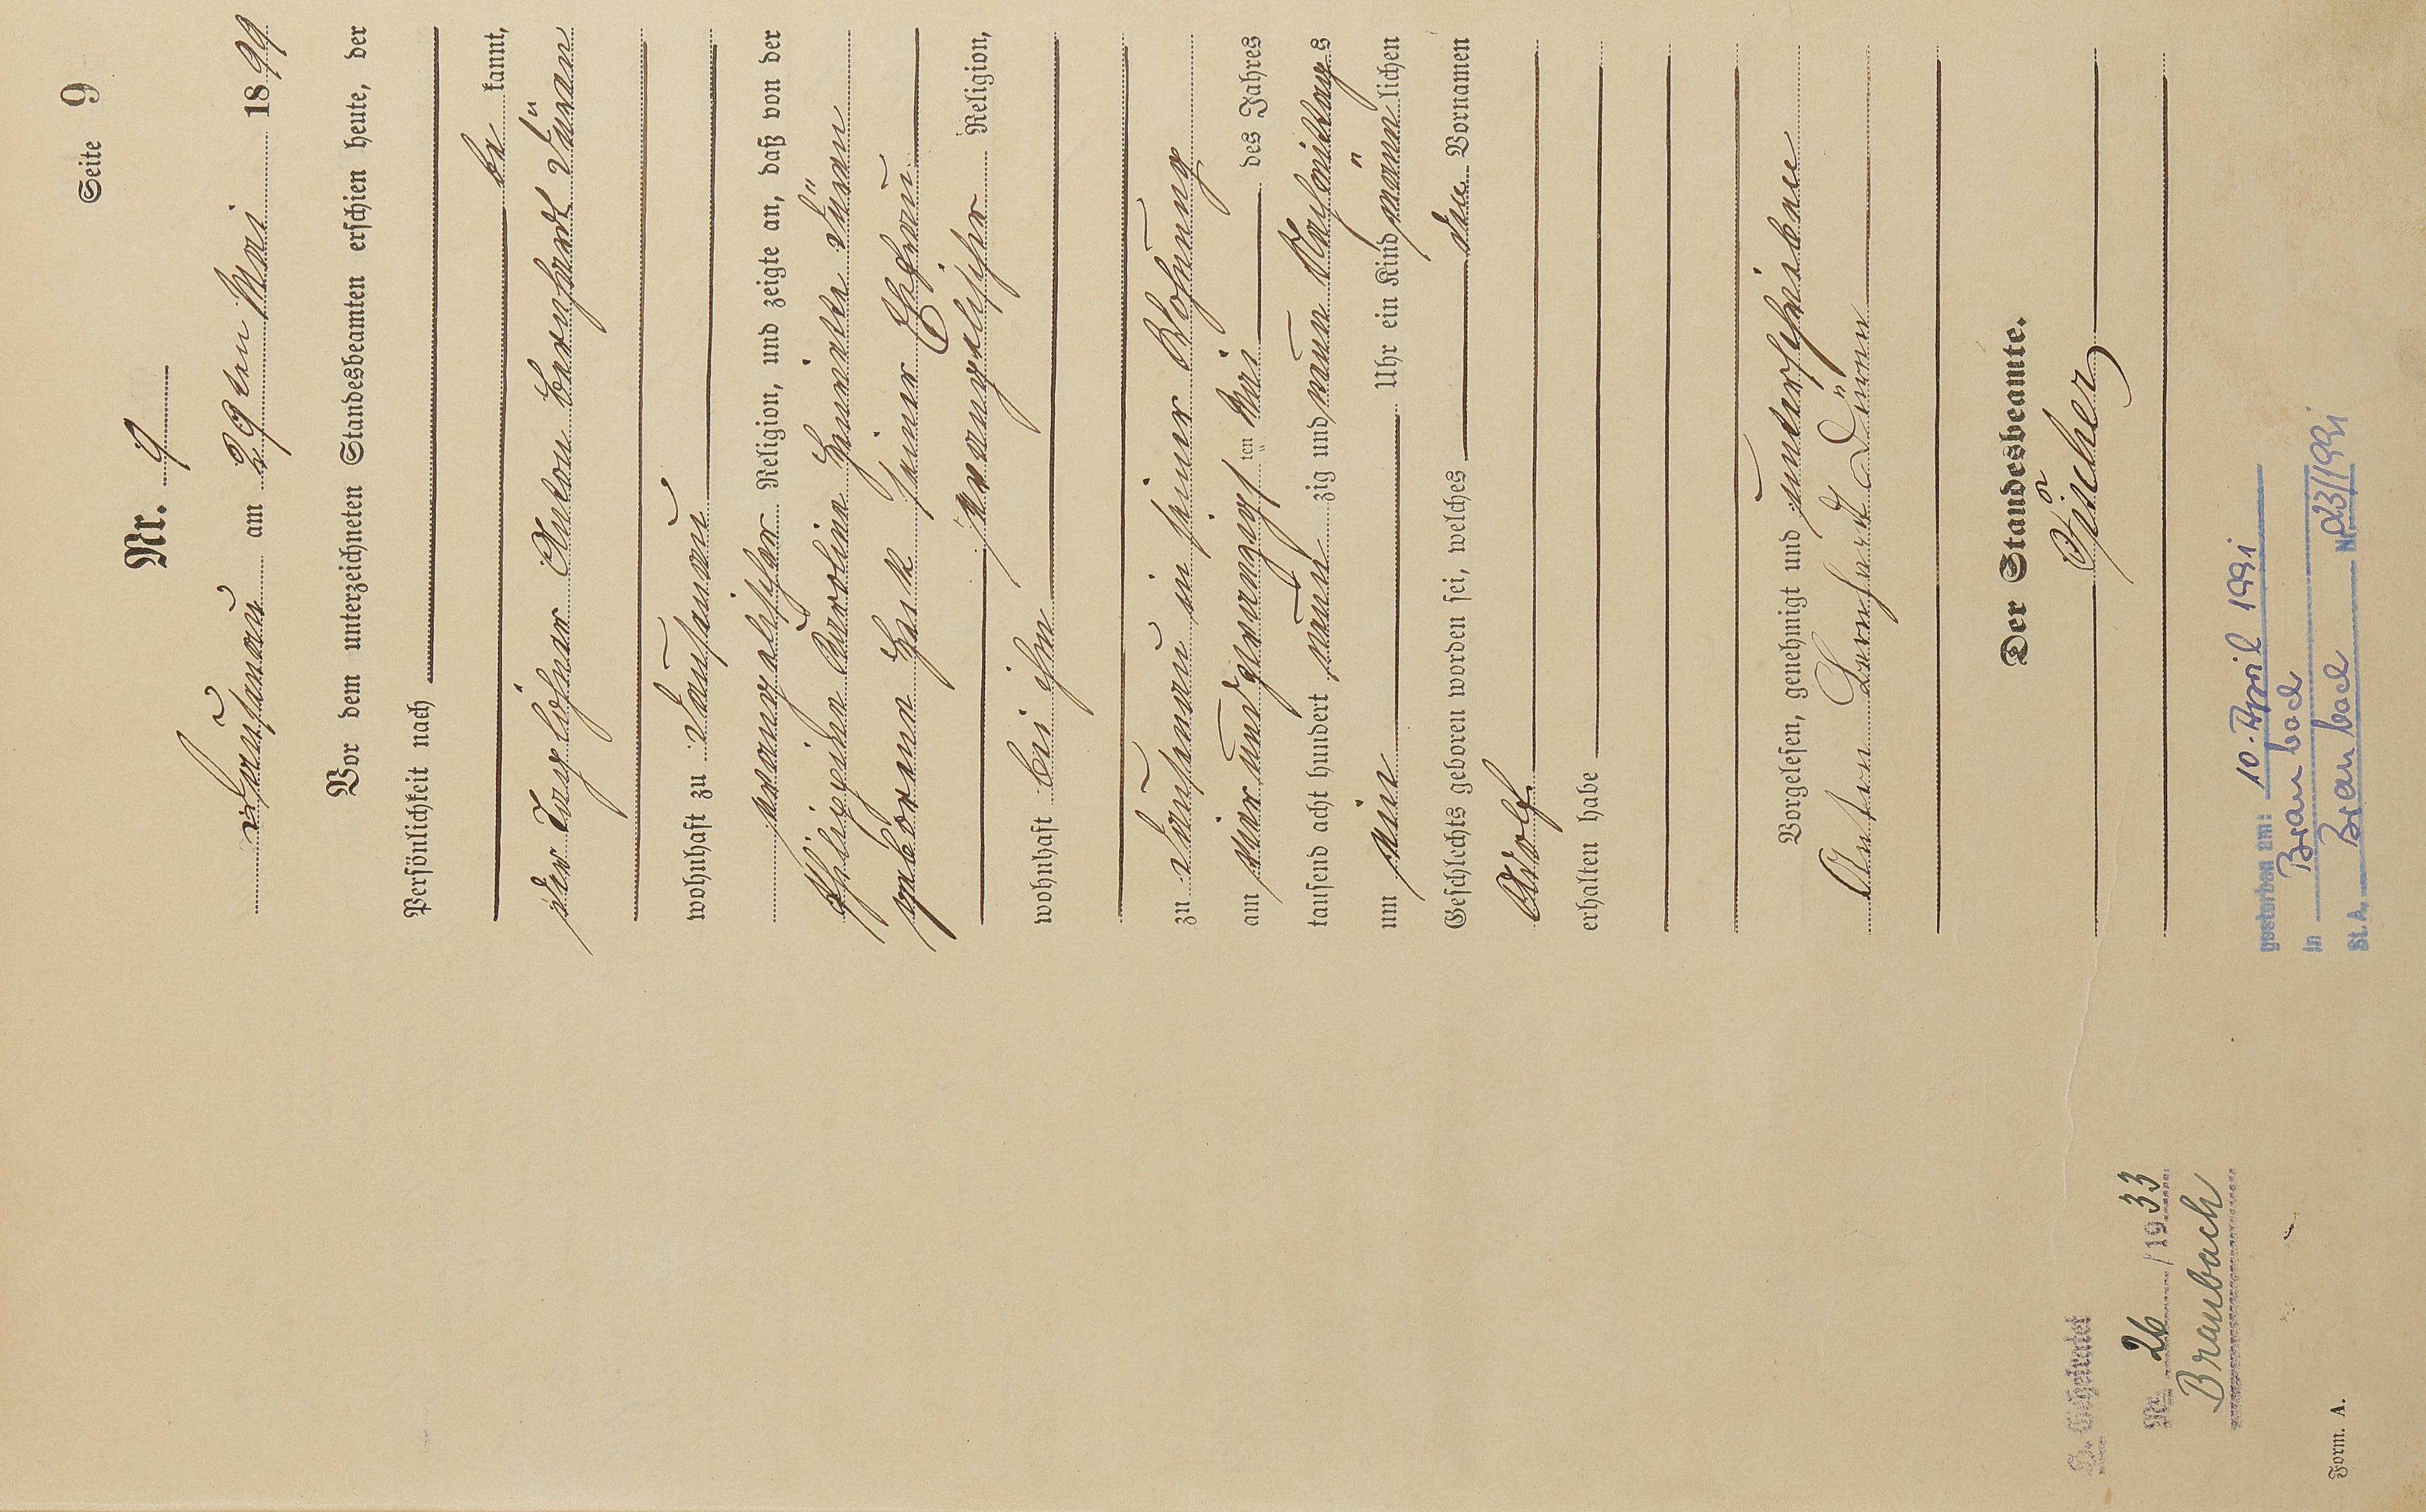 Seite 9
Nr. 9
Dausenau am 29ten Mai 1899
Vor dem unterzeichneten Standesbeamten erschien heute, der
Persönlichkeit nach
be kannt,
der Taglöhner Anton Bernhard Düren
wohnhaft zu Dausenau
evangelischer Religion, und zeigte an, daß von der
Philippine Karoline Henriette Düren
geborene seiner Ehefrau
evangelischer Religion,
wohnhaft bei ihm
zu Dausenau in seiner Wohnung
am vierundzwanzigs ten Mai des Jahres
tausend acht hundert neun zig und neun Nachmittags
um ein Uhr ein Kind männ lichen
Geschlechts geboren worden sei, welches den Vornamen
Adolf
erhalten habe
Vorgelesen, genehmigt und unterschrieben
Anton Bernhard Düren
Der Standesbeamte.
Fischer
gestorben am: 10. April 1991
in Braubach
St. A. Braubach Nr. 23/1991
Geheiratet
Nr. 26 / 1933
Braubach
Form. A.